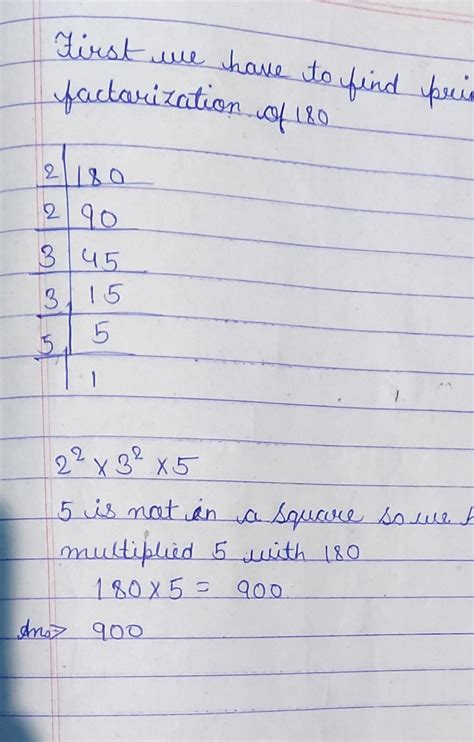 First we have to find
factarization of 180
2 | 180
2 | 90
3 | 45
3 | 15
5 | 5
| 1
2² × 3² × 5
5 is not in a square so we
multiplied 5 with 180
180 × 5 = 900
Ans⇒ 900